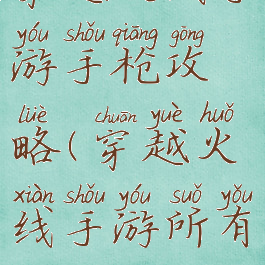 yóu shǒu qiāng gōng
游手枪攻
lüè chuān yuè huǒ
略(穿越火
xiàn shǒu yóu suǒ yǒu
线手游所有